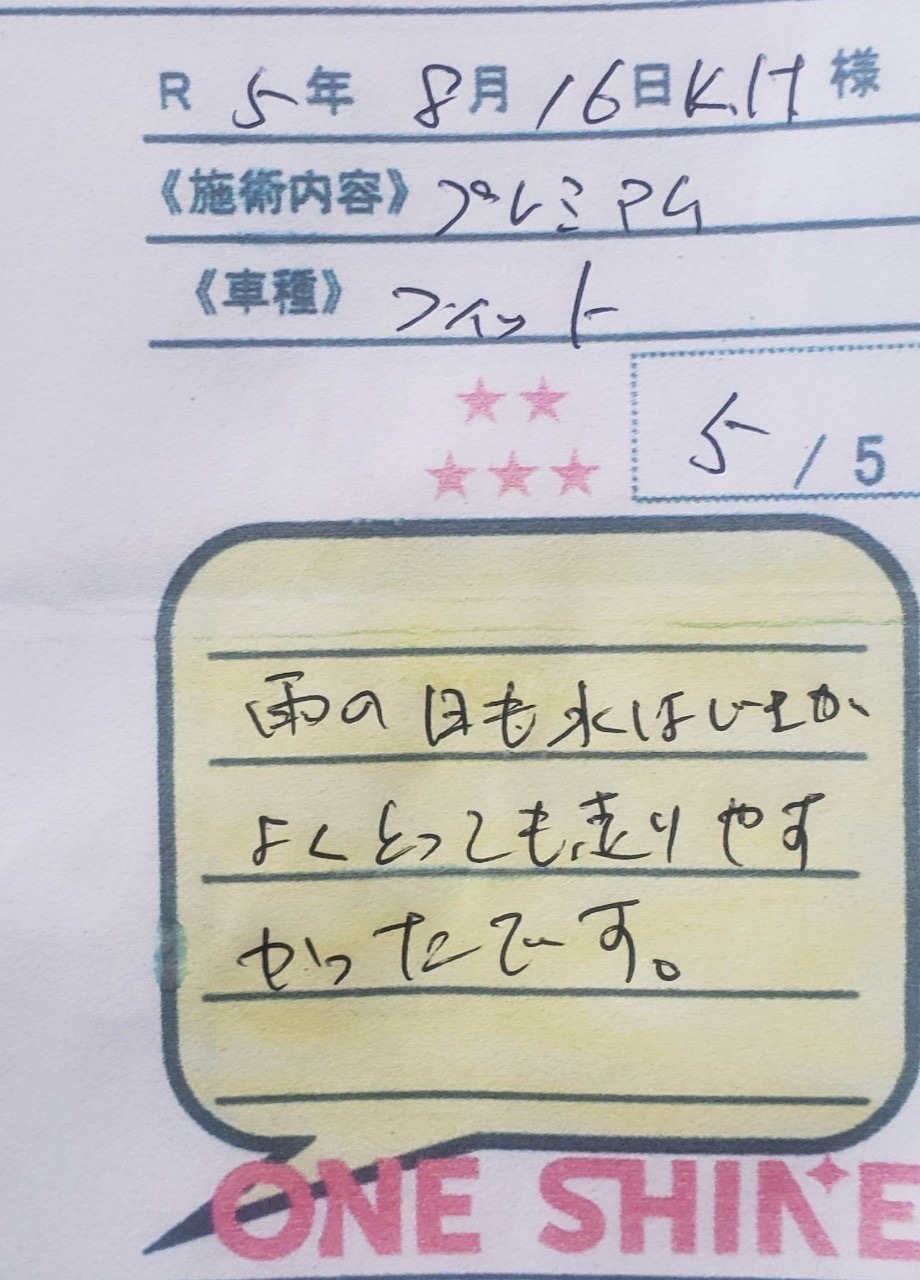 R 5年 8月 16日 K.H 様
《施術内容》 プレミアム
《車種》 フィット
5 / 5
雨の日も水はじきが
よくとっても走りやす
かったです。
ONE SHINE